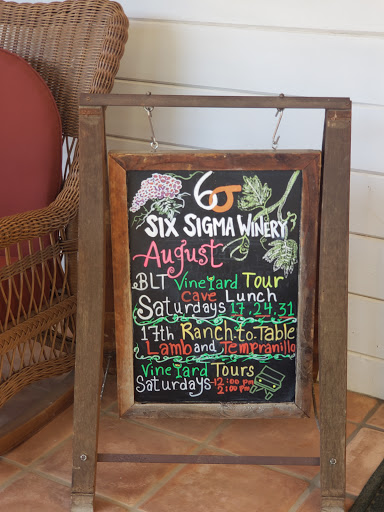 6σ
Six Sigma Winery
August
BLT Vineyard Tour
Cave Lunch
Saturdays 17, 24, 31
17th Ranch-to-Table
Lamb and Tempranillo
Vineyard Tours
Saturdays-12:00 pm
2:00 pm